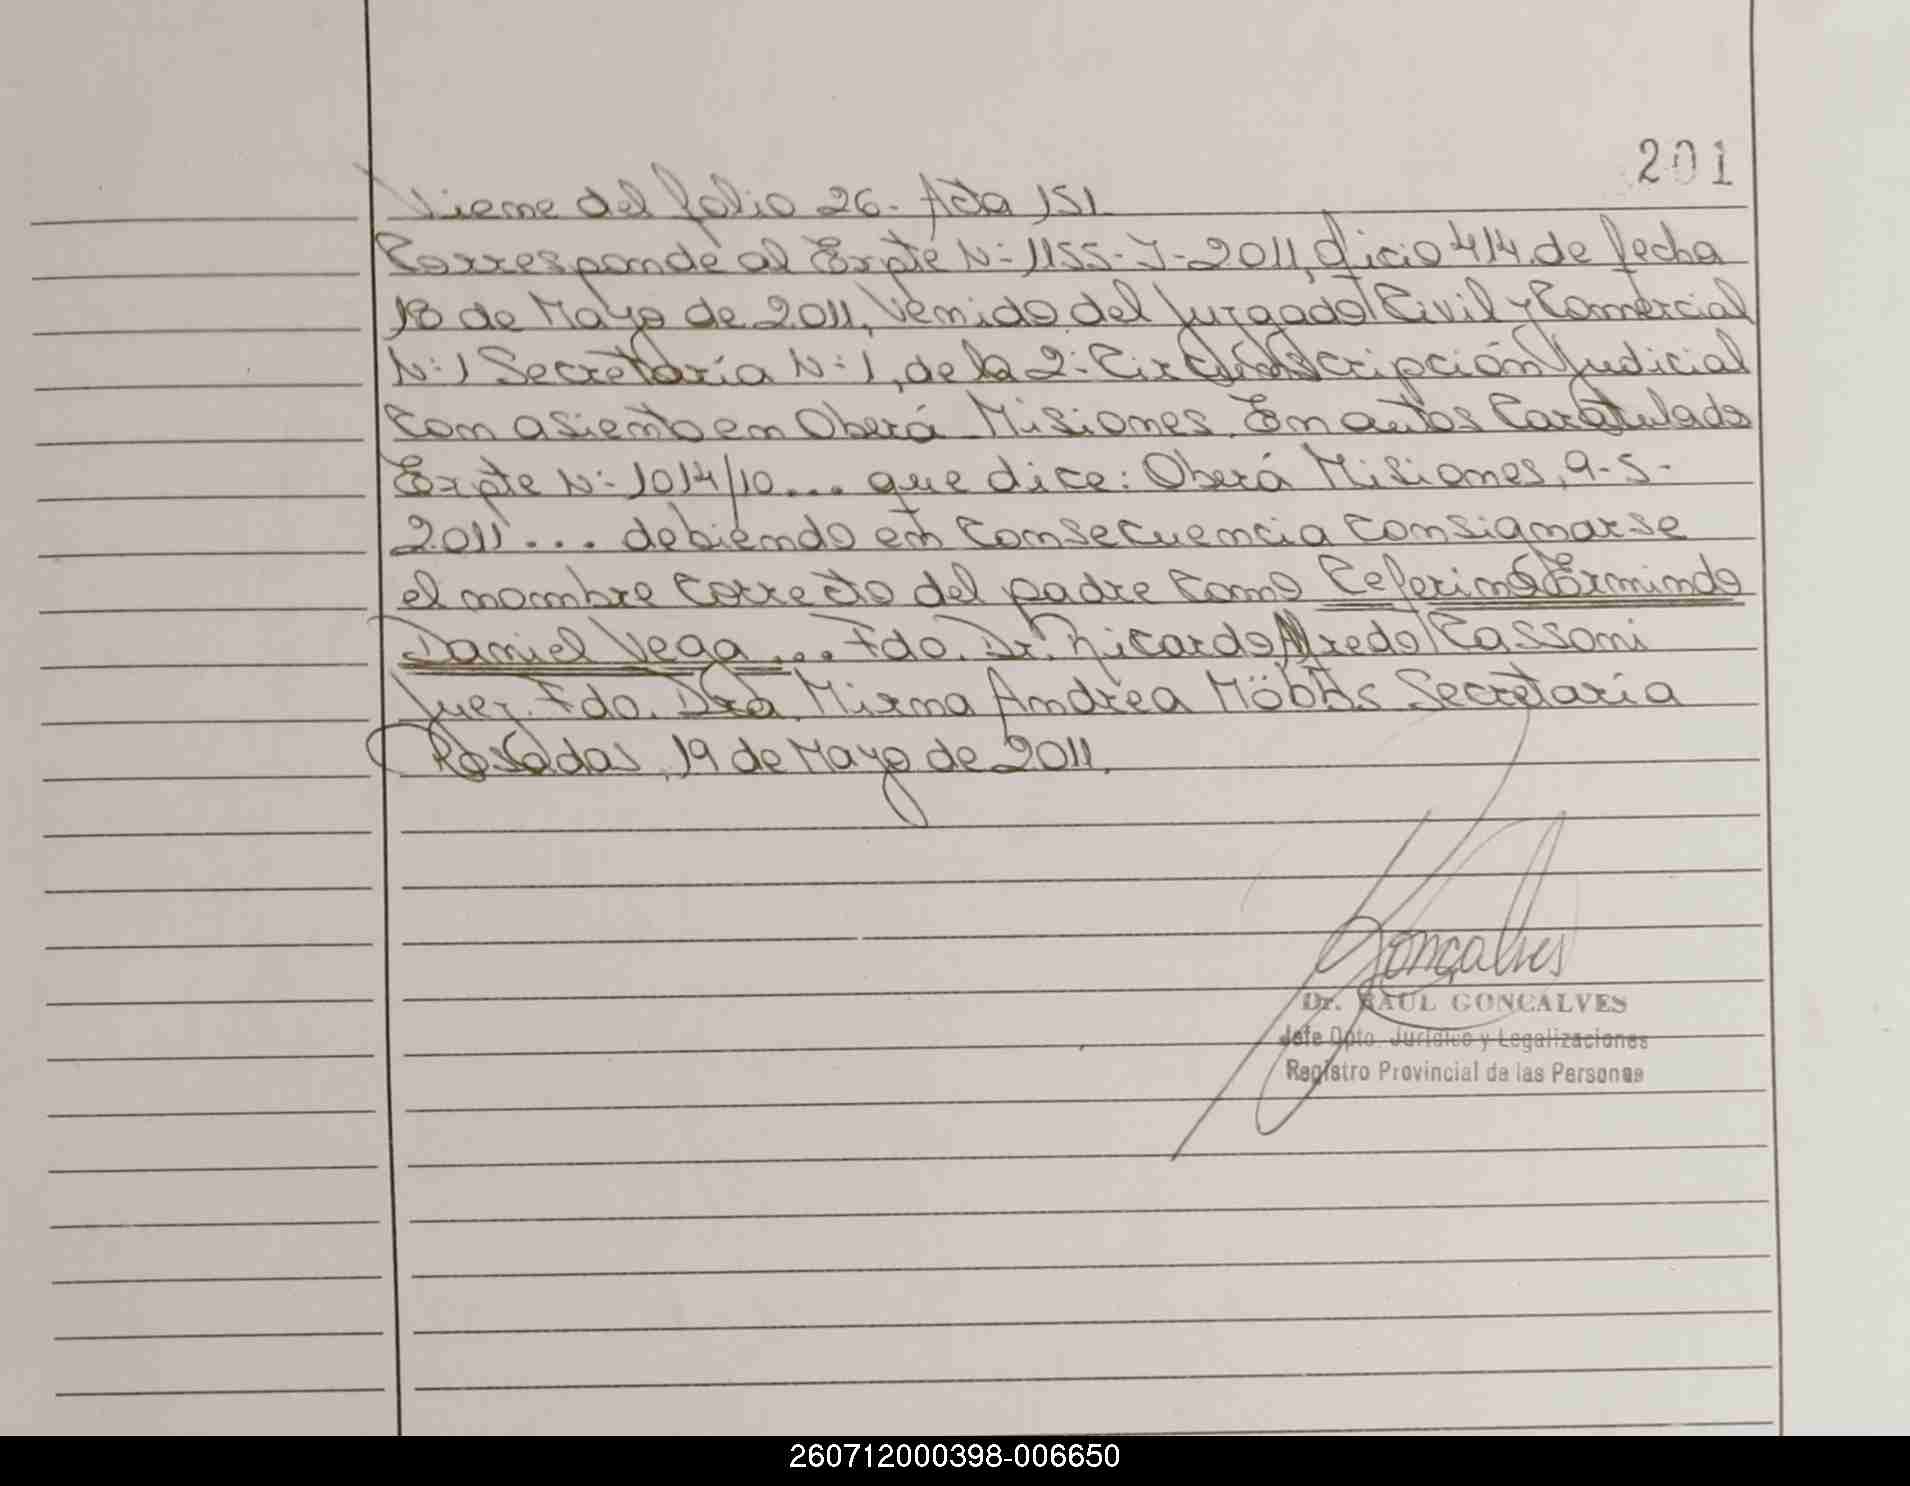 201
Viene del folio 26. Acta 151
Corresponde al Expte N: 1155-J-2011, oficio 414 de fecha
18 de Mayo de 2011, Venido del Juzgado Civil y Comercial
N: 1 Secretaría N: 1, de la 2: Circunscripción Judicial
con asiento en Oberá Misiones. En autos Caratulado
Expte N: 1014/10.... que dice: Oberá Misiones, 9-5-
2011 ... debiendo en consecuencia consignarse
el nombre correcto del padre como Ceferino Ermindo
Daniel Vega ... Fdo. Dr. Ricardo Alfredo Cassoni
Juez. Fdo. Dra. Mirna Andrea Möbbs Secretaría
Posadas, 19 de Mayo de 2011.
Goncalves
Dr. RAUL GONCALVES
Jefe Dpto. Jurídico y Legalizaciones
Registro Provincial de las Personas
260712000398-006650